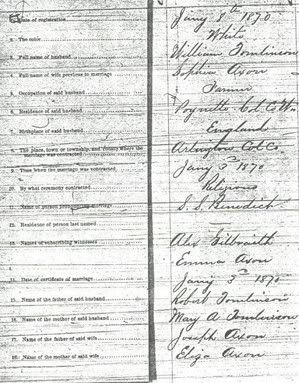 Date of registration Jany 8th 1870
2. The color White
3. Full name of husband William Tomlinson
4. Full name of wife previous to marriage Sophia Axon
5. Occupation of said husband Farmer
6. Residence of said husband Poynette Col. Co.
7. Birthplace of said husband England
8. The place, town or township, and county where the marriage was contracted Arlington Col. Co.
9. Time when the marriage was contracted Jany 3rd 1870
10. By what ceremony contracted Religious
Name of person S. S. Benedict
12. Residence of person last named
13. Names of subscribing witnesses Alex Gilbraith
Emma Axon
14. Date of certificate of marriage Jany 3rd 1870
15. Name of the father of said husband Robert Tomlinson
16. Name of the mother of said husband Mary A Tomlinson
17. Name of the father of said wife Joseph Axon
18. Name of the mother of said wife Eliza Axon